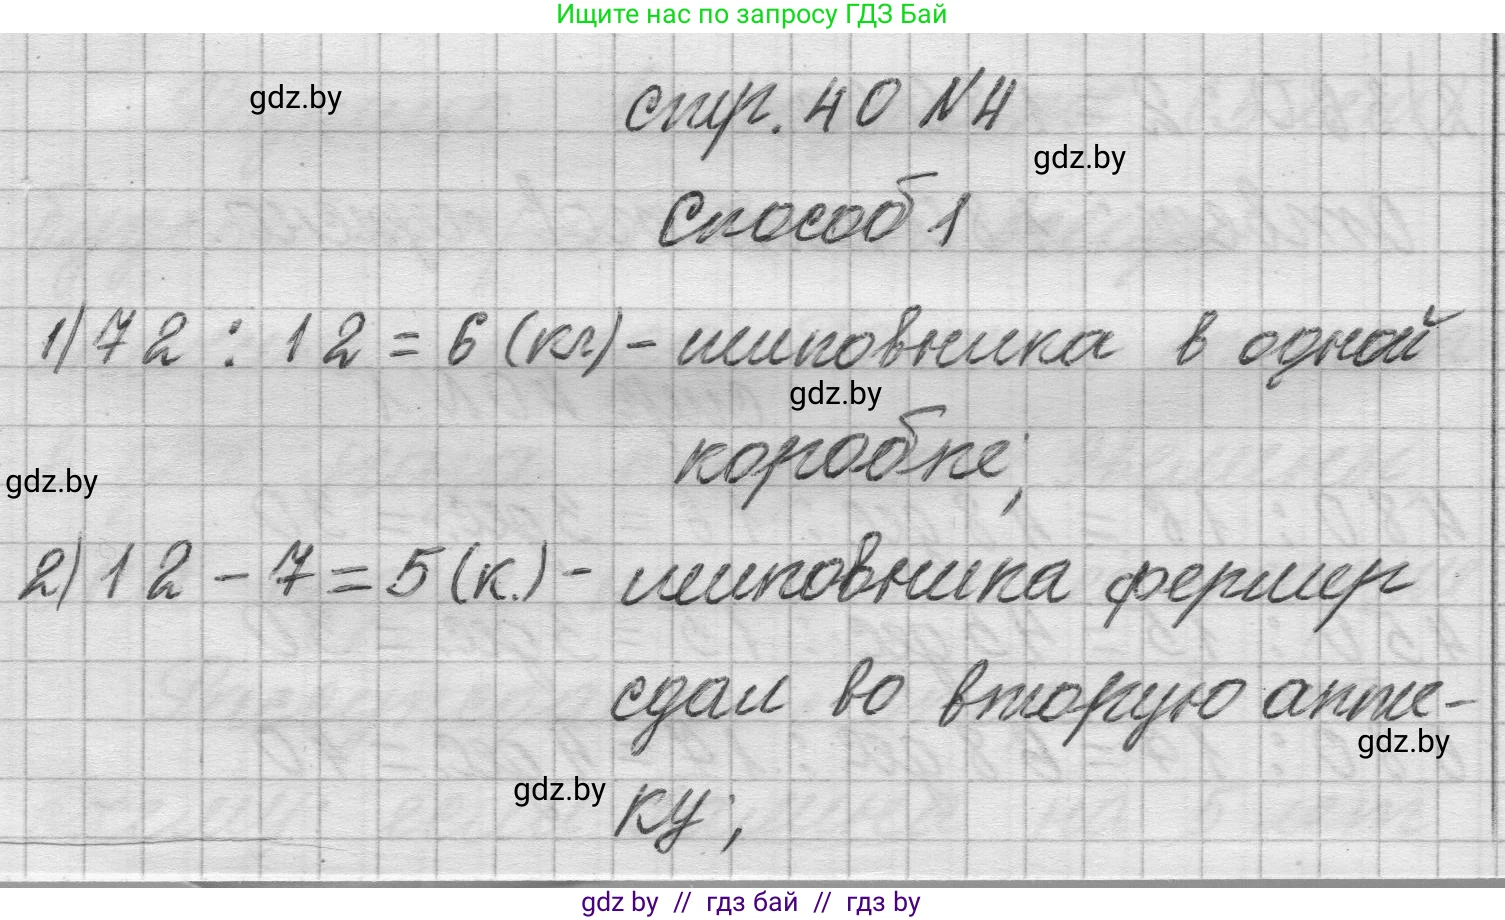 Ищите нас по запросу ГДЗ Бай
gdz.by
стр. 40 №4
gdz.by
Способ 1
1) 72 : 12 = 6 (кг) - шиповника в одной
gdz.by
коробке;
gdz.by
2) 12 - 7 = 5 (к.) - шиповника фермер
сдал во вторую апте-
gdz.by
gdz.by
ку;
gdz by // гдз бай // гдз by